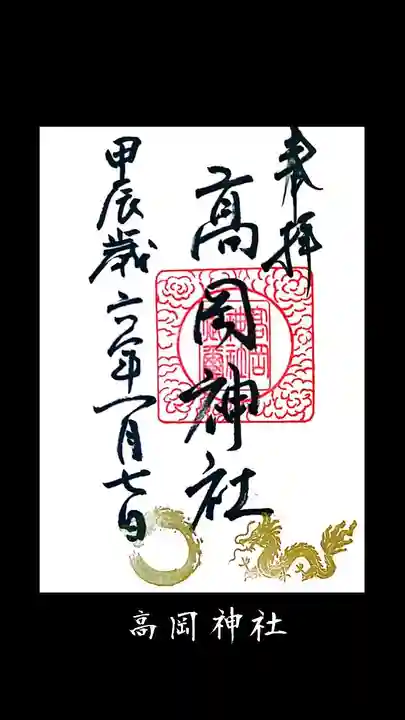 奉拝
髙岡神社
甲辰歳 六年一月七日
高岡神社